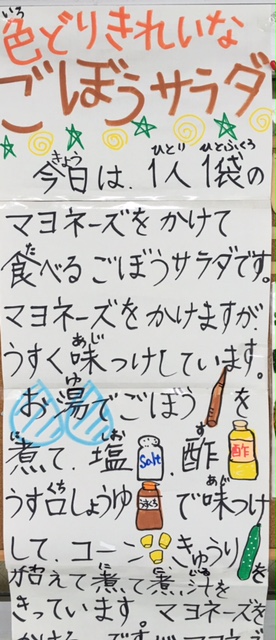 色どりきれいな
いろ
ごぼうサラダ
今日は、1人1袋の
きょう ひとり ひとふくろ
マヨネーズをかけて
食べるごぼうサラダです。
た
マヨネーズをかけますが、
うすく味つけしています。
あじ
お湯でごぼうを
ゆ
煮て、塩、酢
に しお す
Salt
酢
うす口しょうゆで味つけ
くち あじ
して、コーン、きゅうりを
加えて煮て煮汁を
に に じる
きっています。マヨネーズを